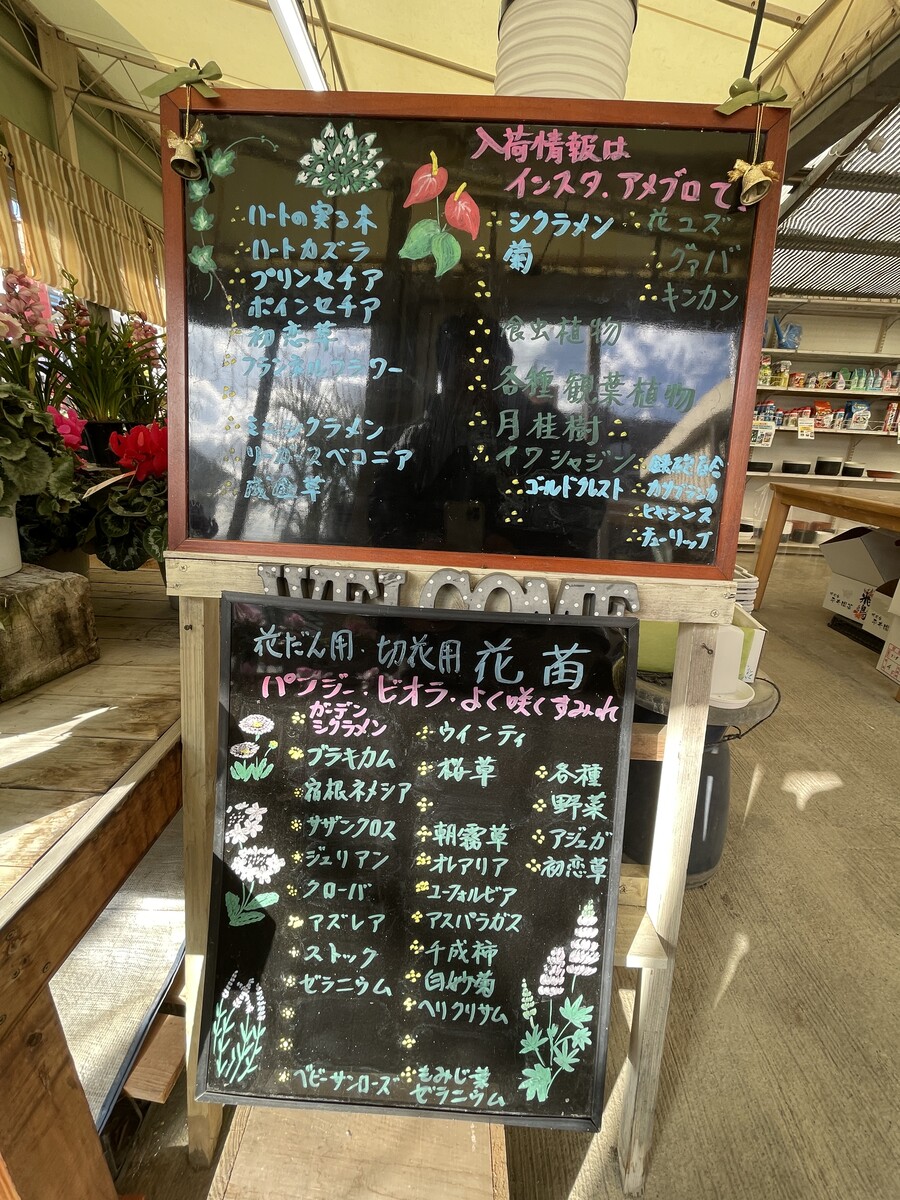 入荷情報は
インスタ、アメブロで、
ハートの実る木
ハートカズラ
プリンセチア
ポインセチア
初恋草
フランネルフラワー
ミニシクラメン
リーガースベコニア
シクラメン
菊
食虫植物
各種観葉植物
月桂樹
イワシャジン
ゴールドクレスト
花ユズ
グァバ
キンカン
鉄砲百合
カサブランカ
ヒヤシンス
チューリップ
WELCOME
花だん用・切花用 花苗
パンジー・ビオラ・よく咲くすみれ
ガーデン
シクラメン
ブラキカム
宿根ネメシア
サザンクロス
ジュリアン
クローバ
アズレア
ストック
ゼラニウム
ベビーサンローズ
ウインティ
桜草
朝霧草
オレアリア
ユーフォルビア
アスパラガス
千成柿
白妙菊
ヘリクリサム
もみじ葉
ゼラニウム
各種
野菜
アジュガ
初恋草